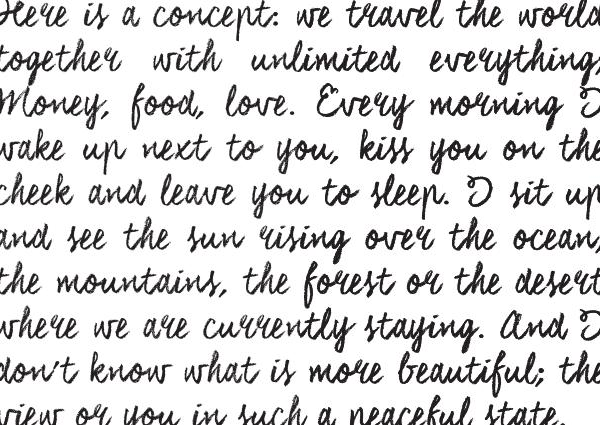 Here is a concept: we travel the world
together with unlimited everything,
Money, food, love. Every morning I
wake up next to you, kiss you on the
cheek and leave you to sleep. I sit up
and see the sun rising over the ocean,
the mountains, the forest or the desert
where we are currently staying. And I
don't know what is more beautiful; the
view or you in such a peaceful state.